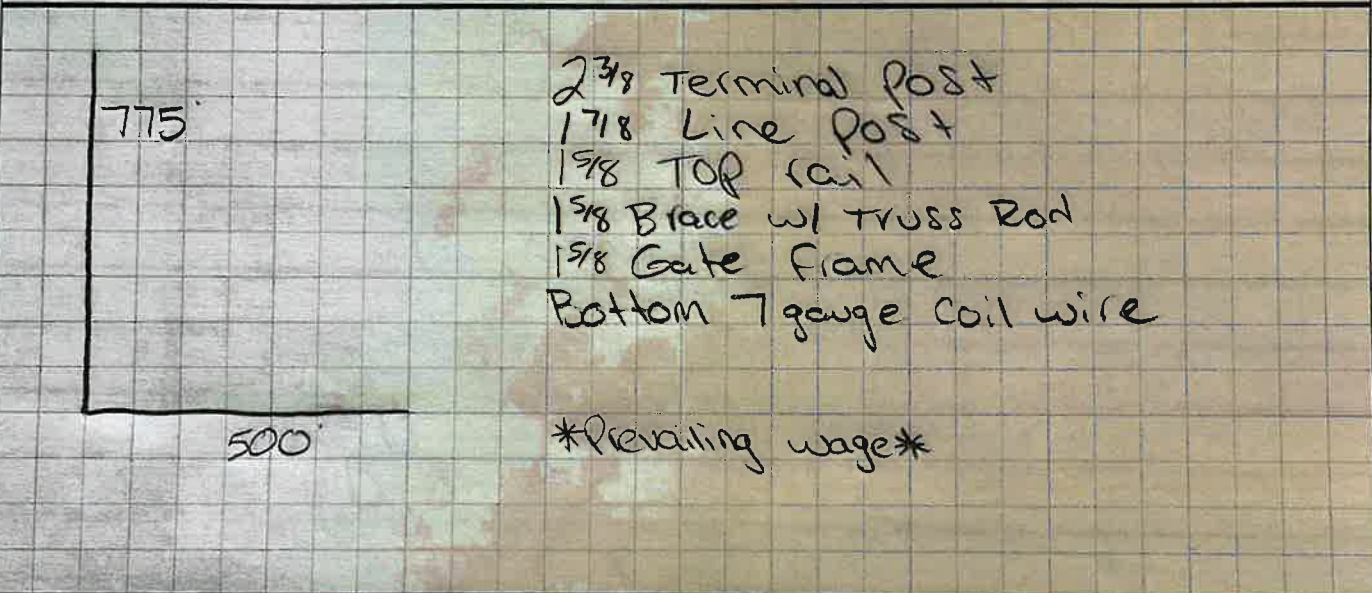 2 3/8 Terminal Post
1 7/8 Line Post
1 5/8 TOP rail
1 5/8 Brace w/ Truss Rod
1 5/8 Gate Frame
Bottom 7 gauge coil wire
775'
500'
*Prevailing wage*